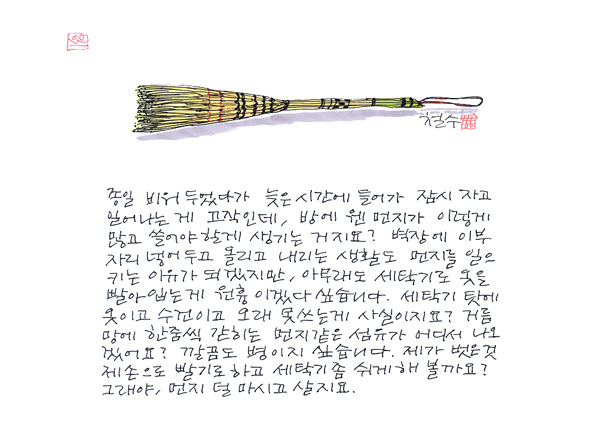 철수
종일 비워 두었다가 늦은 시간에 들어가 잠시 자고
일어나는 게 고작인데, 방에 웬 먼지가 이렇게
많고 쓸어야 할게 생기는 거지요? 벽장에 이부
자리 넣어두고 올리고 내리는 생활도 먼지를 일으
키는 이유가 되겠지만, 아무래도 세탁기로 옷을
빨아입는게 원흉이겠다 싶습니다. 세탁기 탓에
옷이고 수건이고 오래 못쓰는게 사실이지요? 거름
망에 한줌씩 갇히는 먼지같은 섬유가 어디서 나오
겠어요? 깔끔도 병이지 싶습니다. 제가 벗은것
제손으로 빨기로하고 세탁기좀 쉬게해 볼까요?
그래야, 먼지 덜 마시고 살지요.